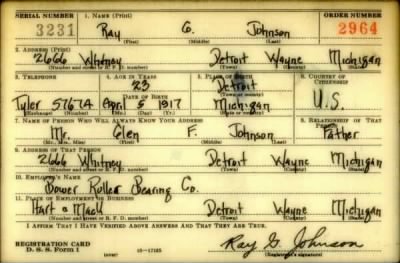 SERIAL NUMBER 1. NAME (Print) ORDER NUMBER
3231 Ray G. Johnson 2964
(First) (Middle) (Last)
2. ADDRESS (Print)
2666 Whitney Detroit Wayne Michigan
(Number and street or R. F. D. number) (Town) (County) (State)
3. TELEPHONE 4. AGE IN YEARS 5. PLACE OF BIRTH 6. COUNTRY OF CITIZENSHIP
23 Detroit
DATE OF BIRTH (Town or county)
Tyler 5767A April 5 1917 Michigan U.S.
(Exchange) (Number) (Mo.) (Day) (Yr.) (State or country)
7. NAME OF PERSON WHO WILL ALWAYS KNOW YOUR ADDRESS 8. RELATIONSHIP OF THAT PERSON
Mr. Glen F. Johnson Father
(Mr., Mrs., Miss) (First) (Middle) (Last)
9. ADDRESS OF THAT PERSON
2666 Whitney Detroit Wayne Michigan
(Number and street or R. F. D. number) (Town) (County) (State)
10. EMPLOYER'S NAME
Bower Roller Bearing Co.
11. PLACE OF EMPLOYMENT OR BUSINESS
Hart & Mack Detroit Wayne Michigan
(Number and street or R. F. D. number) (Town) (County) (State)
I AFFIRM THAT I HAVE VERIFIED ABOVE ANSWERS AND THAT THEY ARE TRUE.
REGISTRATION CARD Ray G. Johnson
D. S. S. Form 1 (over) 16—17105 (Registrant's signature)